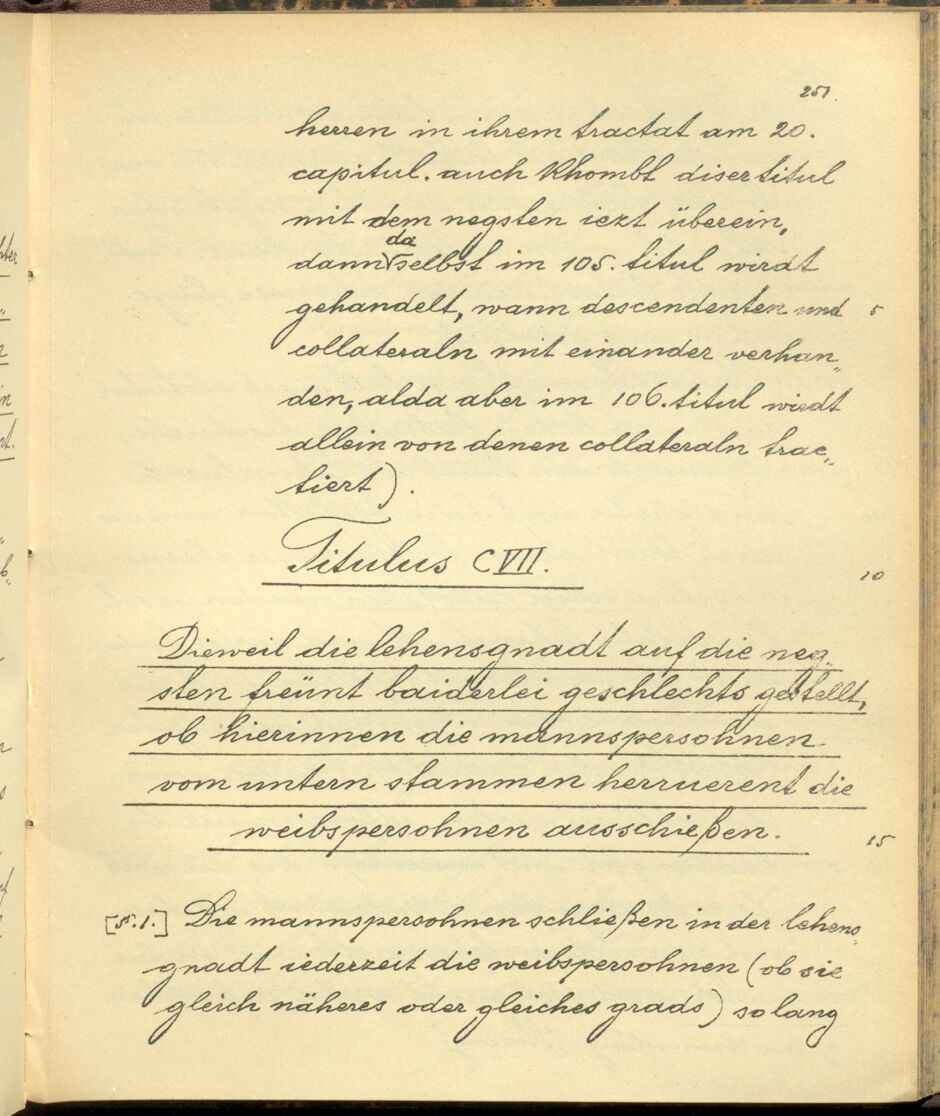 251.
herren in ihrem tractat am 20.
capitul. auch khombt diser titul
mit dem negsten iezt überein,
da
dann selbst im 105. titul wirdt
gehandelt, wann descendenten und 5
collateraln mit einander verhan„
den, alda aber im 106. titul wirdt
allein von denen collateraln trac„
tiert).
Titulus CVII.
10
Dieweil die lehensgnadt auf die neg„
sten freünt baiderlei geschlechts gestellt,
ob hierinnen die mannspersohnen
vom untern stammen herruerent die
weibspersohnen ausschießen.
15
[§.1.] Die mannspersohnen schließen in der lehens„
gnadt iederzeit die weibspersohnen (ob sie
gleich näheres oder gleiches grads) so lang